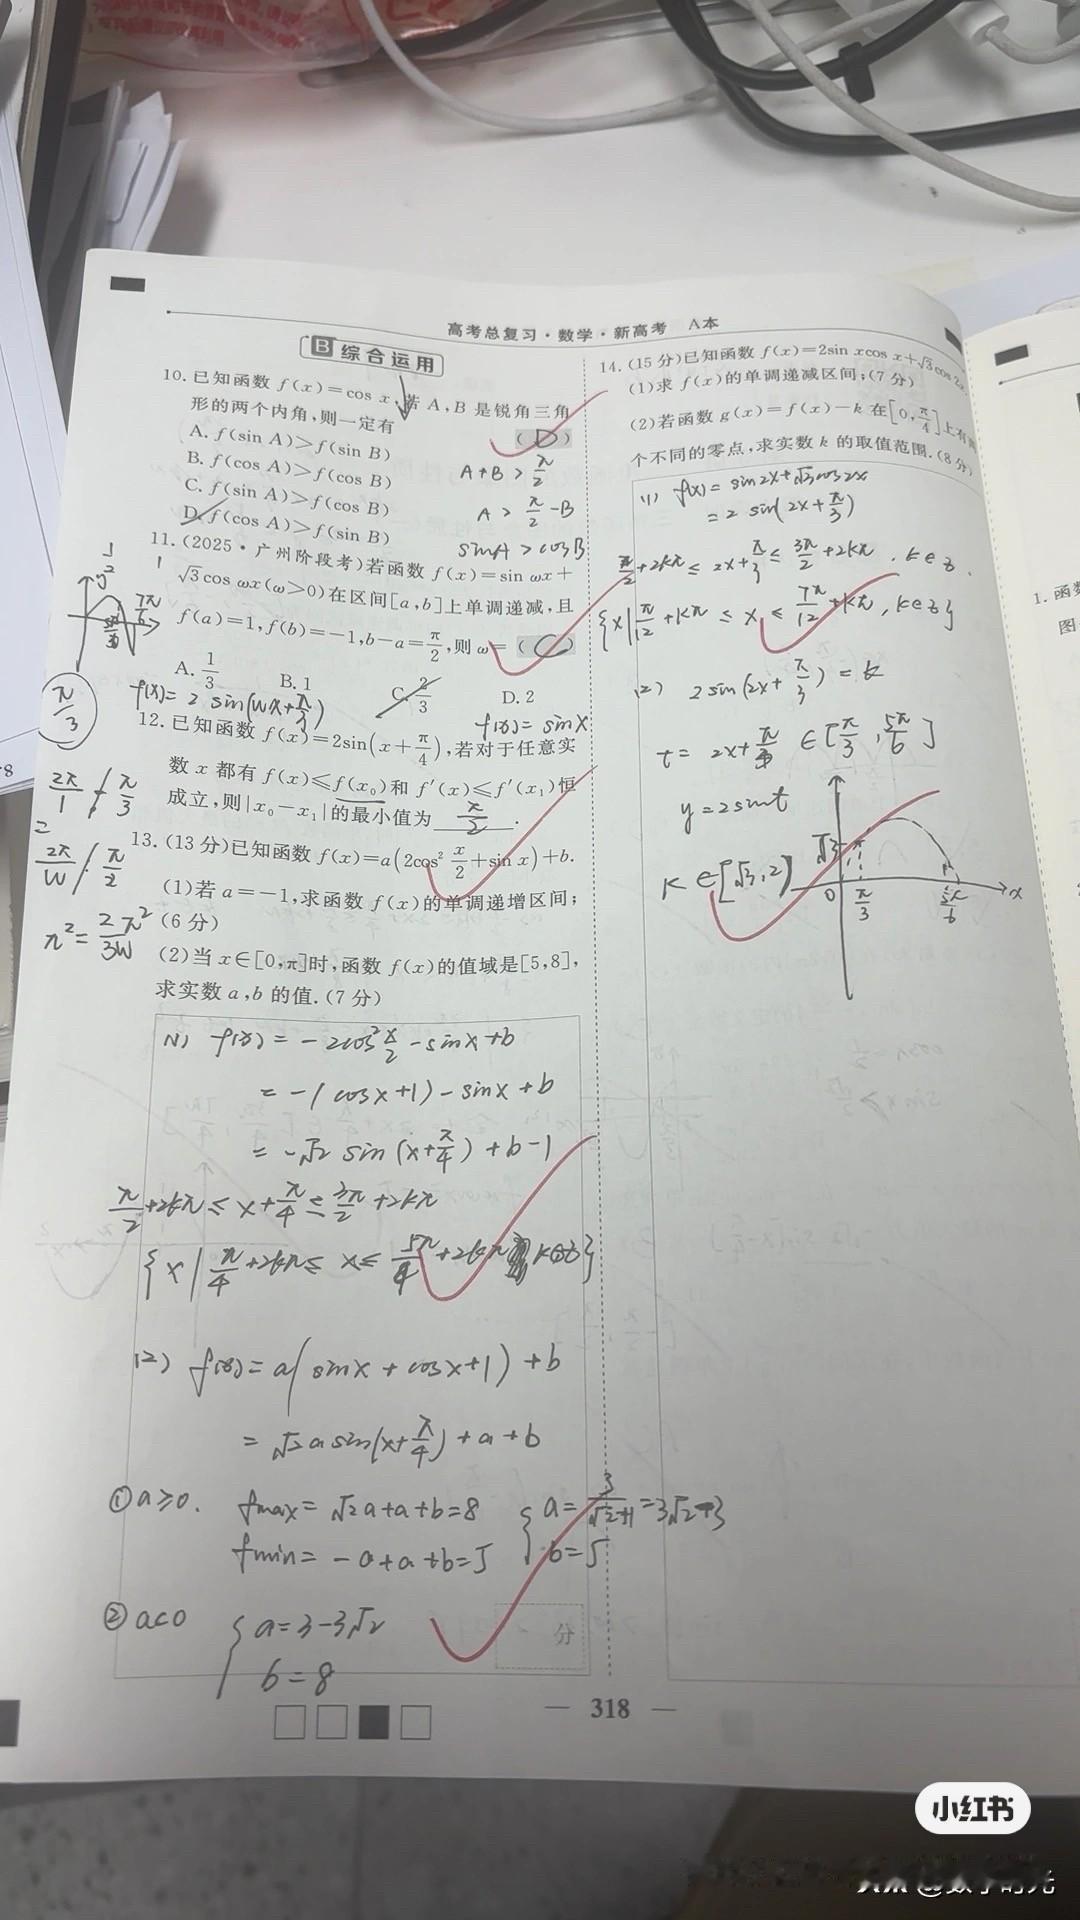 高考总复习·数学·新高考 A本
B 综合运用
10.已知函数 f(x)=cos x,若 A,B 是锐角三角
形的两个内角,则一定有 ( D )
A. f(sin A)>f(sin B)
B. f(cos A)>f(cos B)
C. f(sin A)>f(cos B)
D. f(cos A)>f(sin B)
A+B > π/2
A > π/2 -B
sinA > cosB
11.(2025·广州阶段考)若函数 f(x)=sin ωx+
√3cos ωx(ω>0)在区间[a,b]上单调递减,且
f(a)=1,f(b)=-1,b-a=π/2,则 ω= ( C )
A. 1/3 B. 1 C. 2/3 D. 2
f(x)= 2 sin(wx+π/3)
7π/6
π/3
2π/1
π/3
=
2π/W · π/2
π²= 2π²/3W
12.已知函数 f(x)=2sin(x+π/4),若对于任意实
f(x)= sinx
数 x 都有 f(x)≤f(x₀)和 f′(x)≤f′(x₁)恒
成立,则|x₀-x₁|的最小值为 π/2 .
13.(13 分)已知函数 f(x)=a(2cos² x/2+sin x)+b.
(1)若 a=-1,求函数 f(x)的单调递增区间;
(6 分)
(2)当 x∈[0,π]时,函数 f(x)的值域是[5,8],
求实数 a,b 的值.(7 分)
(1) f(x)= -2cos² x/2 -sinx+b
= -(cosx+1)-sinx+b
= -√2 sin(x+π/4)+b-1
π/2+2kπ ≤ x+π/4 ≤ 3π/2+2kπ
{x| π/4+2kπ ≤ x ≤ 5π/4+2kπ k∈z}
(2) f(x)= a(sinx+cosx+1)+b
= √2 a sin(x+π/4)+a+b
①a≥0. fmax= √2a+a+b=8
fmin= -a+a+b=5
{ a= 3/√2+1 =3√2-3
b=5
②a<0 { a=3-3√2
b=8
分
14.(15 分)已知函数 f(x)=2sin xcos x+√3cos 2x
(1)求 f(x)的单调递减区间;(7 分)
(2)若函数 g(x)=f(x)-k 在[0,π/4]上有
个不同的零点,求实数 k 的取值范围.(8 分)
(1) f(x)= sin2x+√3cos2x
= 2 sin(2x+π/3)
π/2+2kπ ≤ 2x+π/3 ≤ 3π/2+2kπ . k∈z.
{x| π/12+kπ ≤ x ≤ 7π/12+kπ, k∈z}
(2) 2sin(2x+π/3)=k
t= 2x+π/3 ∈[π/3,5π/6]
y=2sint
k∈[√3,2)
√3
0 π/3 5π/6 x
1.函数
图
— 318 —
小红书